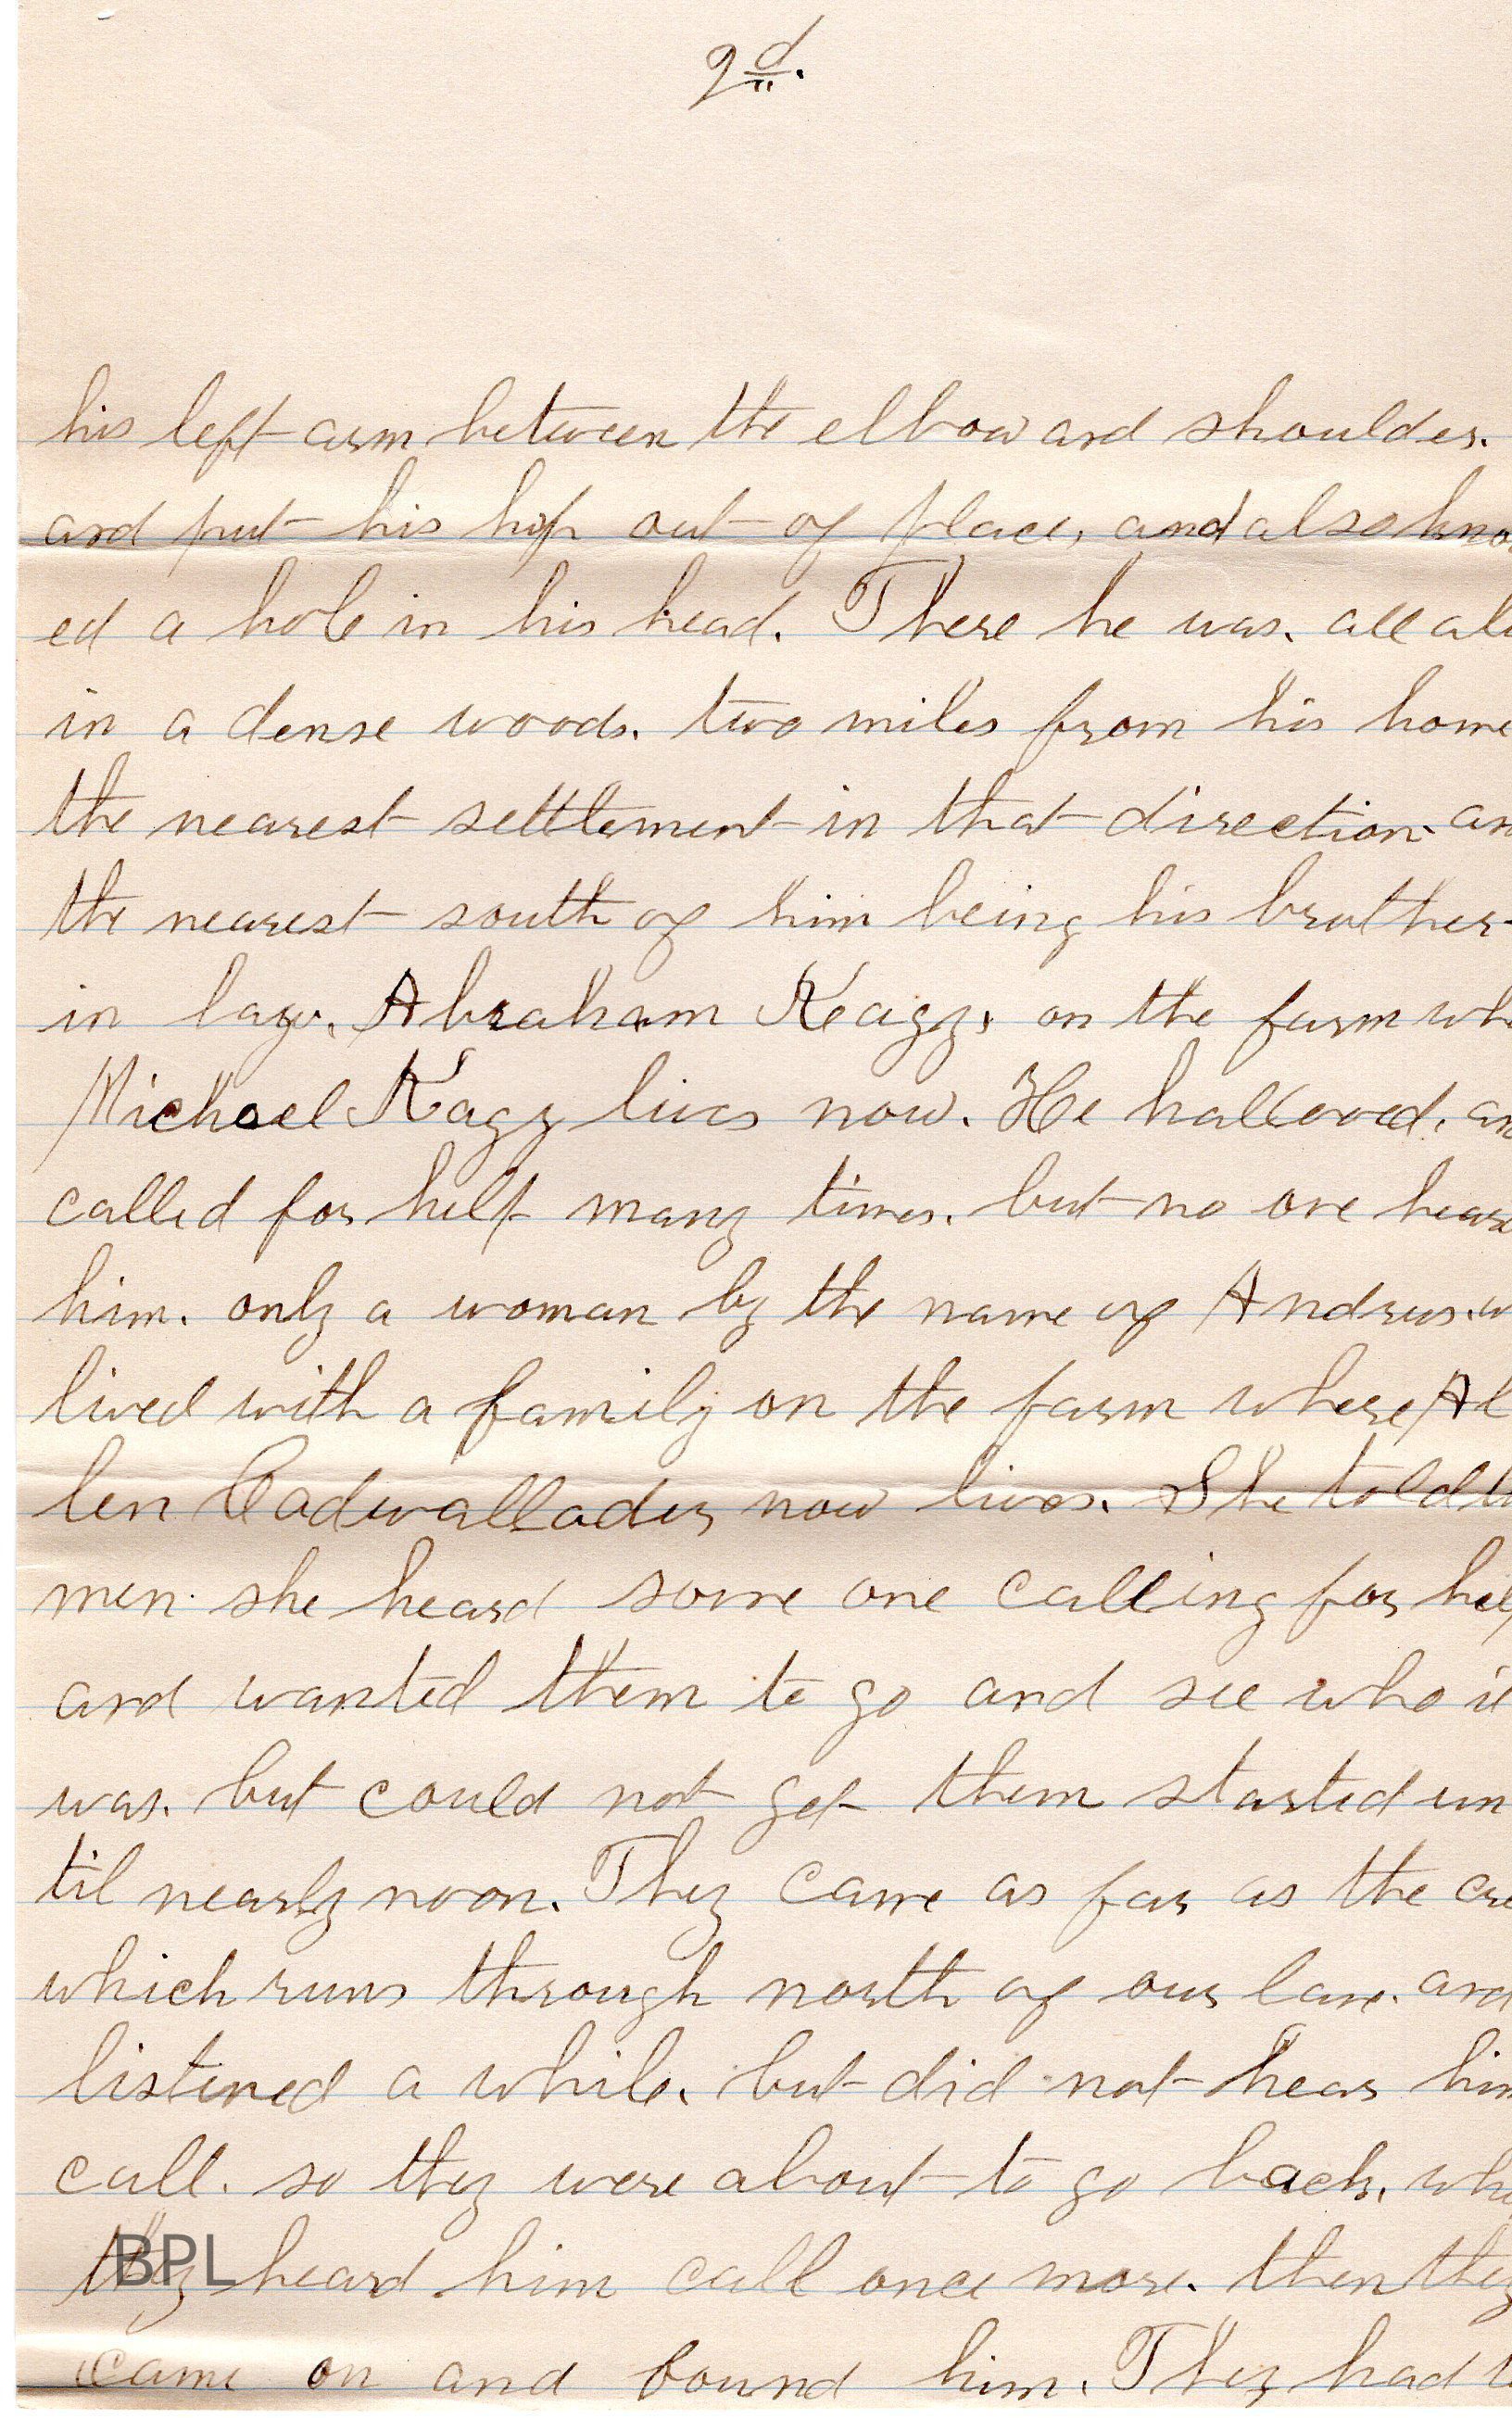 2d.
his left arm between the elbow and shoulder.
and put his hip out of place, and also kno
ed a hole in his head. There he was. all alo
in a dense woods. two miles from his home
the nearest settlement in that direction. an
the nearest south of him being his brother-
in law. Abraham Keagy. on the farm whe
Michael Kagy lives now. He hallooed. an
called for help many times. but no one hear
him. only a woman by the name of Andrus. w
lived with a family on the farm where Al
len Cadwallader now lives. She told th
men she heard some one calling for help
and wanted them to go and see who it
was. but could not get them started un
til nearly noon. They came as far as the cre
which runs through north of our lane. and
listened a while. but did not hear him
call. so they were about to go back. whe
they heard him call once more. then they
came on and found him. They had t
BPL